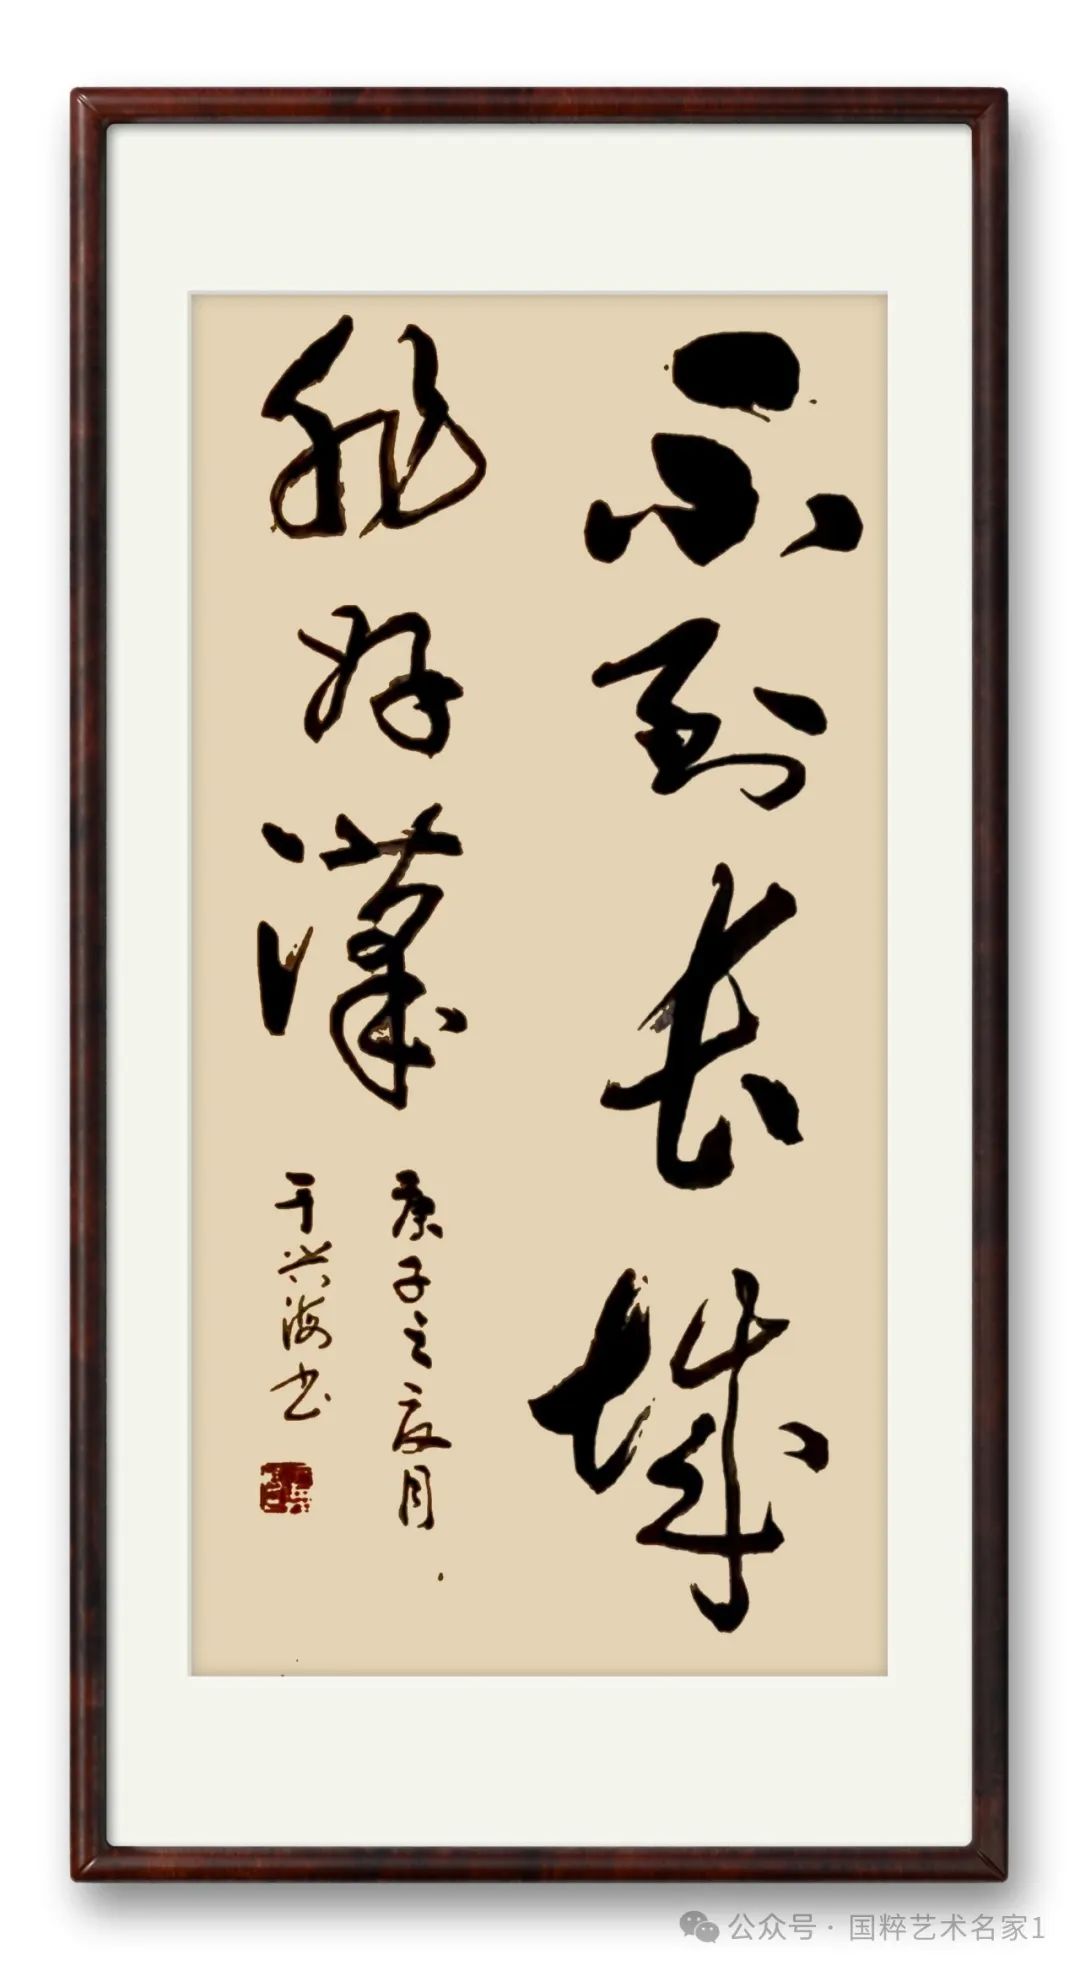 不到长城
非好漢
庚子之夏月
于兴海书
公众号·国粹艺术名家1